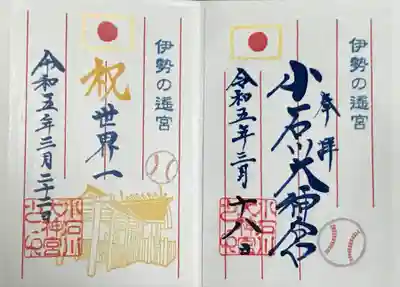 伊勢の遙宮
奉拝
小石川大神宮
令和五年三月十八日
小石川
大神宮
伊勢の遙宮
祝世界一
令和五年三月二十二日
小石川
大神宮